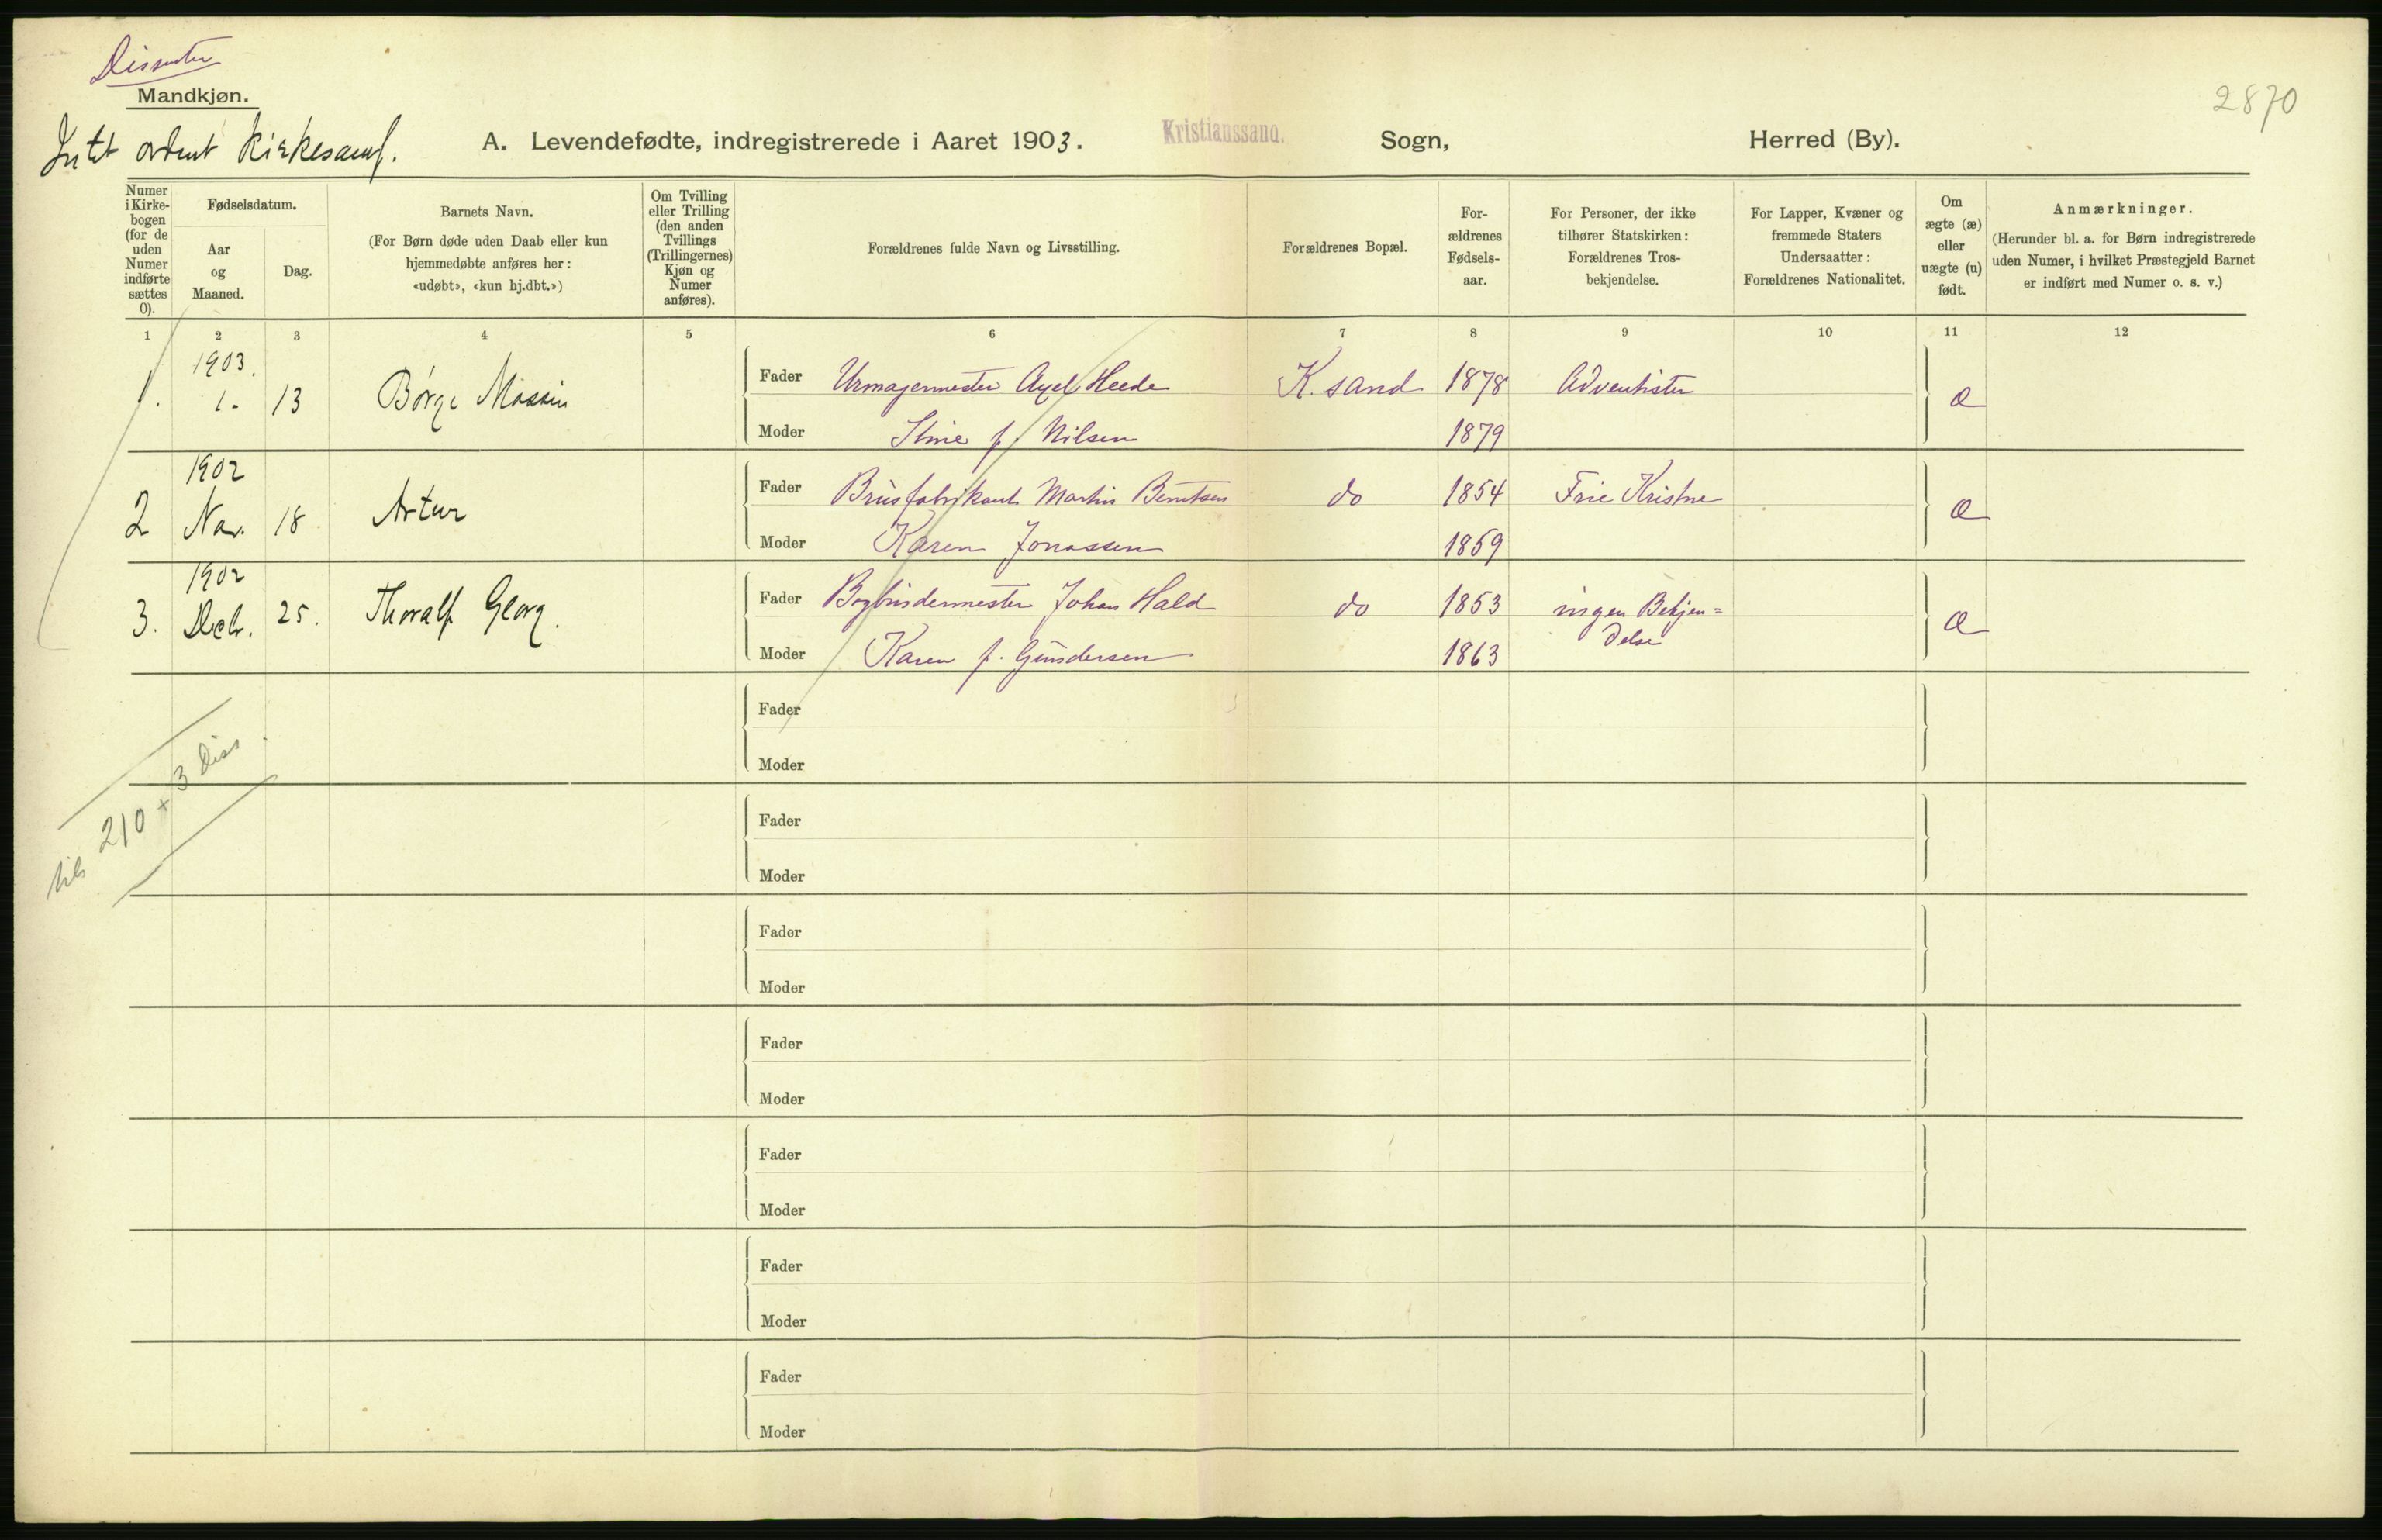 Dissenter
Mandkjøn.
2870
Intet ordent kirkesamf.
A. Levendefødte, indregistrerede i Aaret 1903. Kristianssand. Sogn, Herred (By).
Numer i Kirke-bogen (for de uden Numer indførte sættes 0).
Fødselsdatum.
Aar og Maaned.
Dag.
Barnets Navn.
(For Børn døde uden Daab eller kun hjemmedøbte anføres her: «udøbt», «kun hj.dbt.»)
Om Tvilling eller Trilling (den anden Tvillings (Trillingernes) Kjøn og Numer anføres).
Forældrenes fulde Navn og Livsstilling.
Forældrenes Bopæl.
For-ældrenes Fødsels-aar.
For Personer, der ikke tilhører Statskirken: Forældrenes Tros-bekjendelse.
For Lapper, Kvæner og fremmede Staters Undersaatter: Forældrenes Nationalitet.
Om ægte (æ) eller uægte (u) født.
Anmærkninger.
(Herunder bl. a. for Børn indregistrerede uden Numer, i hvilket Præstegjeld Barnet er indført med Numer o. s. v.)
1 2 3 4 5 6 7 8 9 10 11 12
1903.
1. 1. 13 Børge Fader Urmagermester Axel Heede K.sand 1878 Adventister æ
Moder Stine f. Nilsen 1879
1902
2 Nov. 18 Artur Fader Brusfabrikant Martin Berntsen do 1854 Frie Kristne æ
Moder Karen Jonassen 1859
1902
3. Decb. 25. Thoralf Georg. Fader Bogbindermester Johan Hald do 1853 ingen Bekjen=
delse æ
Moder Karen f. Gundersen 1863
Fader
Moder
tils 210 + 3 Diss.
Fader
Moder
Fader
Moder
Fader
Moder
Fader
Moder
Fader
Moder
Fader
Moder